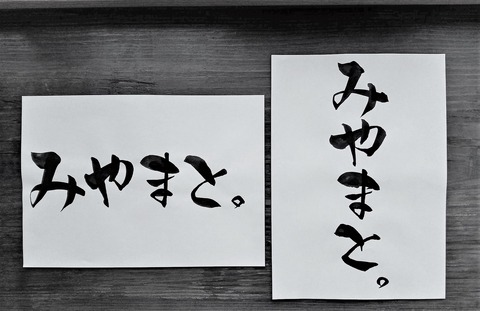 みやまと。
みやまと。